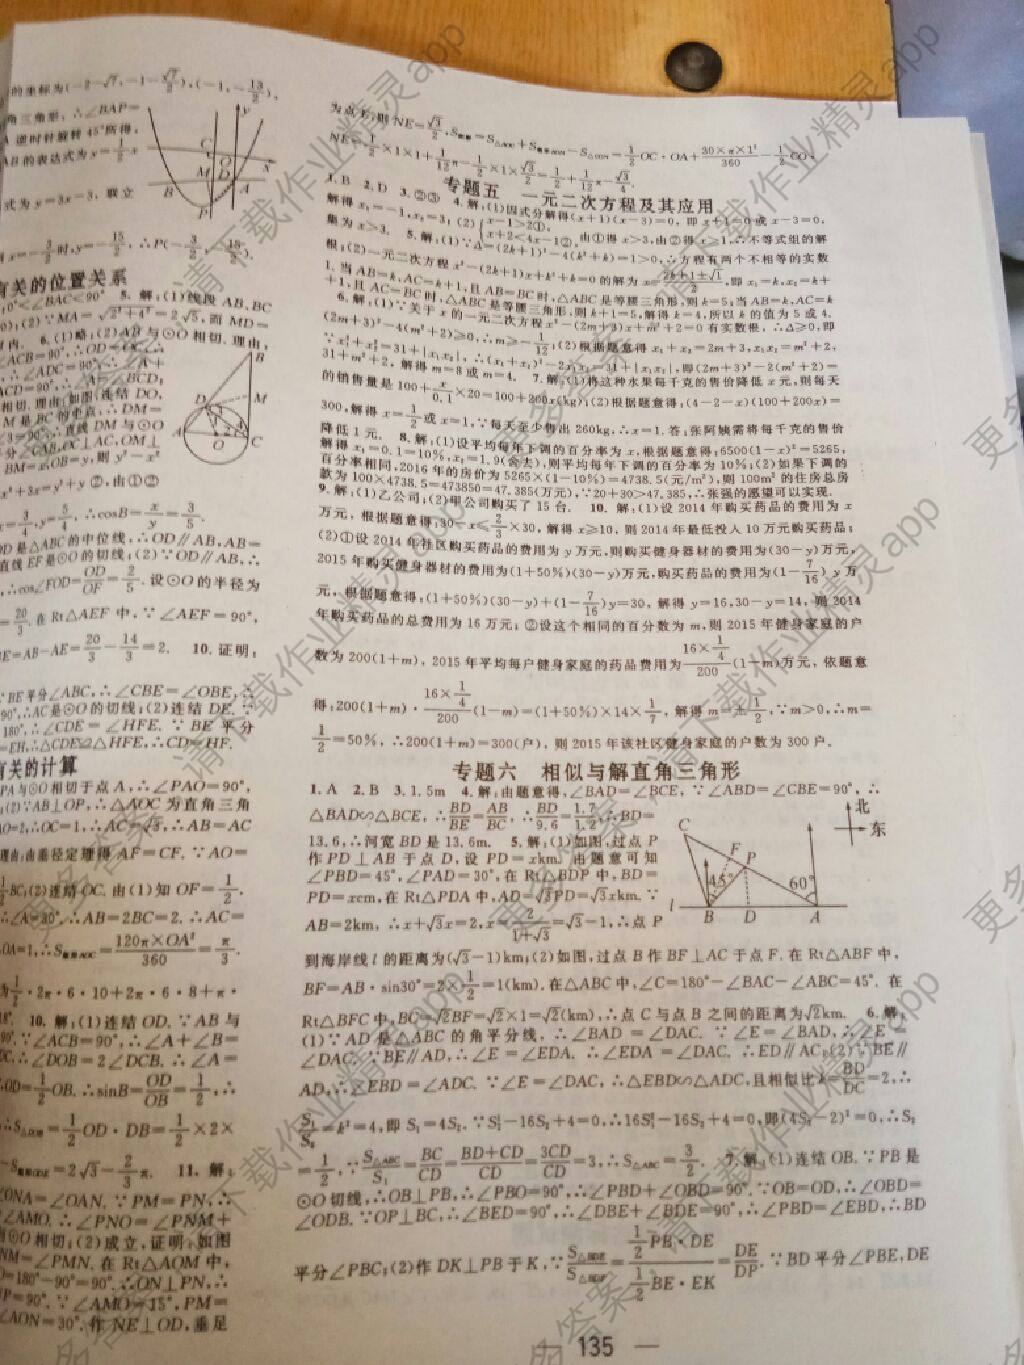 的坐标为(-2-√7,-1-√7/2),(-1,-13/2),
角三角形,∴∠BAP=
逆时针旋转45°所得,
AB的表达式为y=1/2x
式为y=3x-3,联立
x=-3/2时,y=-15/2,∴P(-3/2,-15/2).
有关的位置关系
0°<∠BAC<90° 5.解:(1)线段AB、BC
(2)∵MA=√(2²+4²)=2√5,而MD=
6.(1)略;(2)AB与⊙O相切.理由:
∠ACB=90°,∴OD=OC,∴
相切.理由:如图,连结DO,
M是BC的中点,∴DM=
∴直线DM与⊙O
BM=x,OB=y,则y²-x²
x²+3x=y²+y②,由①②
x=3/4,y=5/4,∴cosB=x/y=3/5.
OD是△ABC的中位线,∴OD∥AB,AB=
直线EF是⊙O的切线;(2)∵OD∥AB,∴
∴cos∠FOD=OD/OF=2/5.设⊙O的半径为
=20/3.在Rt△AEF中,∵∠AEF=90°,
BE=AB-AE=20/3-14/3=2. 10.证明:
∵BE平分∠ABC,∴∠CBE=∠OBE,∴
90°,∴AC是⊙O的切线;(2)连结DE.∵
180°,∴∠CDE=∠HFE.∵BE平分
=EH,∴△CDE≌△HFE,∴CD=HF.
有关的计算
PA与⊙O相切于点A,∴∠PAO=90°,
(2)∵AB⊥OP,∴△AOC为直角三角
AO=2,∴OC=1,∴AC=√3,∴AB=AC
理由:由垂径定理得AF=CF.∵AO=
1/2BC;(2)连结OC.由(1)知OF=1/2,
∴∠A=30°,∴AB=2BC=2.∴AC=
OA=1,∴S扇形AOC=120π×OA²/360=π/3.
为1/2·2π·6·10+2π·6·8+π·
10.解:(1)连结OD.∵AB与
90°.∵∠ACB=90°,∴∠A+∠B=
DC,∴∠DOB=2∠DCB.∴∠A=
∴OD=1/2OB.∴sinB=OD/OB=1/2,∴
∴S△ODB=1/2OD·DB=1/2×2×
-S扇形ODE=2√3-2/3π. 11.解:
∠ONA=∠OAN.∵PM=PN,∴
∠AMO.∴∠PNO=∠PNM+
与⊙O相切;(2)成立,证明:如图
∠PNM=∠PMN.在Rt△AOM中,
=180°-90°=90°.∴ON⊥PN,∴
∠AMO=15°,PM=
∠AON=30°.作NE⊥OD,垂足
为点E,则NE=√3/2,S阴影=S△AOC+S扇形AON-S△CON=1/2OC·OA+30×π×1²/360-1/2CO·
NE=1/2×1×1+1/12π-1/2×1×√3/2=1/2+1/12π-√3/4.
专题五 一元二次方程及其应用
1.B 2.D 3.②③ 4.解:(1)因式分解得(x+1)(x-3)=0,即x+1=0或x-3=0,
解得x₁=-1,x₂=3;(2){x-1>2①,x+2<4x-1②,由①得x>3,由②得x>1,∴不等式组的解
集为x>3. 5.解:(1)∵Δ=(2k+1)²-4(k²+k)=1>0,∴方程有两个不相等的实数
根;(2)一元二次方程x²-(2k+1)x+k²+k=0的解为x=(2k+1±√1)/2,即x₁=k,x₂=k+
1.当AB=k,AC=k+1,且AB=BC时,△ABC是等腰三角形,则k=5;当AB=k,AC=k
+1,且AC=BC时,△ABC是等腰三角形,则k+1=5,解得k=4,所以k的值为5或4.
6.解:(1)∵关于x的一元二次方程x²-(2m+3)x+m²+2=0有实数根,∴Δ≥0,即
(2m+3)²-4(m²+2)≥0,∴m≥-1/12;(2)根据题意得x₁+x₂=2m+3,x₁x₂=m²+2,
∵x₁²+x₂²=31+|x₁x₂|,∴(x₁+x₂)²-2x₁x₂=31+|x₁x₂|,即(2m+3)²-2(m²+2)=
31+m²+2,解得m=8或m=4. 7.解:(1)将这种水果每千克的售价降低x元,则每天
的销售量是100+x/0.1×20=100+200x(kg);(2)根据题意得:(4-2-x)(100+200x)=
300,解得x=1/2或x=1,∵每天至少售出260kg,∴x=1.答:张阿姨需将每千克的售价
降低1元. 8.解:(1)设平均每年下调的百分率为x,根据题意得:6500(1-x)²=5265,
解得x₁=0.1=10%,x₂=1.9(舍去),则平均每年下调的百分率为10%;(2)如果下调的
百分率相同,2016年的房价为5265×(1-10%)=4738.5(元/m²),则100m²的住房总房
款为100×4738.5=473850=47.385(万元),∵20+30>47.385,∴张强的愿望可以实现.
9.解:(1)乙公司;(2)甲公司购买了15台. 10.解:(1)设2014年购买药品的费用为x
万元,根据题意得:30-x≤2/3×30,解得x≥10,则2014年最低投入10万元购买药品;
(2)①设2014年社区购买药品的费用为y万元,则购买健身器材的费用为(30-y)万元,
2015年购买健身器材的费用为(1+50%)(30-y)万元,购买药品的费用为(1-7/16)y万
元,根据题意得:(1+50%)(30-y)+(1-7/16)y=30,解得y=16,30-y=14,则2014
年购买药品的总费用为16万元;②设这个相同的百分数为m,则2015年健身家庭的户
数为200(1+m),2015年平均每户健身家庭的药品费用为(16×1/4)/200(1-m)万元,依题意
得:200(1+m)·(16×1/4)/200(1-m)=(1+50%)×14×1/7,解得m=±1/2,∵m>0,∴m=
1/2=50%,∴200(1+m)=300(户),则2015年该社区健身家庭的户数为300户.
专题六 相似与解直角三角形
1.A 2.B 3.1.5m 4.解:由题意得,∠BAD=∠BCE,∵∠ABD=∠CBE=90°,∴
△BAD∽△BCE,∴BD/BE=AB/BC,∴BD/9.6=1.7/1.2,∴BD=
13.6,∴河宽BD是13.6m. 5.解:(1)如图,过点P
作PD⊥AB于点D,设PD=xkm.由题意可知
∠PBD=45°,∠PAD=30°,在Rt△BDP中,BD=
PD=xcm,在Rt△PDA中,AD=√3PD=√3xkm.∵
AB=2km,∴x+√3x=2,x=2/(1+√3)=√3-1,∴点P
到海岸线l的距离为(√3-1)km;(2)如图,过点B作BF⊥AC于点F.在Rt△ABF中,
BF=AB·sin30°=2×1/2=1(km).在△ABC中,∠C=180°-∠BAC-∠ABC=45°.在
Rt△BFC中,BC=√2BF=√2×1=√2(km),∴点C与点B之间的距离为√2km. 6.解:
(1)∵AD是△ABC的角平分线,∴∠BAD=∠DAC.∵∠E=∠BAD,∴∠E=
∠DAC.∵BE∥AD,∴∠E=∠EDA.∴∠EDA=∠DAC.∴ED∥AC;(2)∵BE∥
AD,∴∠EBD=∠ADC.∵∠E=∠DAC,∴△EBD∽△ADC,且相似比k=BD/DC=2,∴
S₁/S₂=k²=4,即S₁=4S₂.∵S₁²-16S₂+4=0,∴16S₂²-16S₂+4=0,即(4S₂-2)²=0,∴S₂
=1/2,∵S△ABC/S₁=BC/CD=(BD+CD)/CD=3CD/CD=3,∴S△ABC=3/2. 7.解:(1)连结OB.∵PB是
⊙O切线,∴OB⊥PB,∴∠PBO=90°,∴∠PBD+∠OBD=90°.∵OB=OD,∴∠OBD=
∠ODB.∵OP⊥BC,∴∠BED=90°,∴∠DBE+∠BDE=90°,∴∠PBD=∠EBD,∴BD
平分∠PBC;(2)作DK⊥PB于K,∵S△BDE/S△BDP=(1/2PB·DE)/(1/2BE·EK)=DE/DP.∵BD平分∠PBE,DE
北
东
C
F
P
45°
60°
l
B
D
A
— 135 —
请下载作业精灵app
更多答案